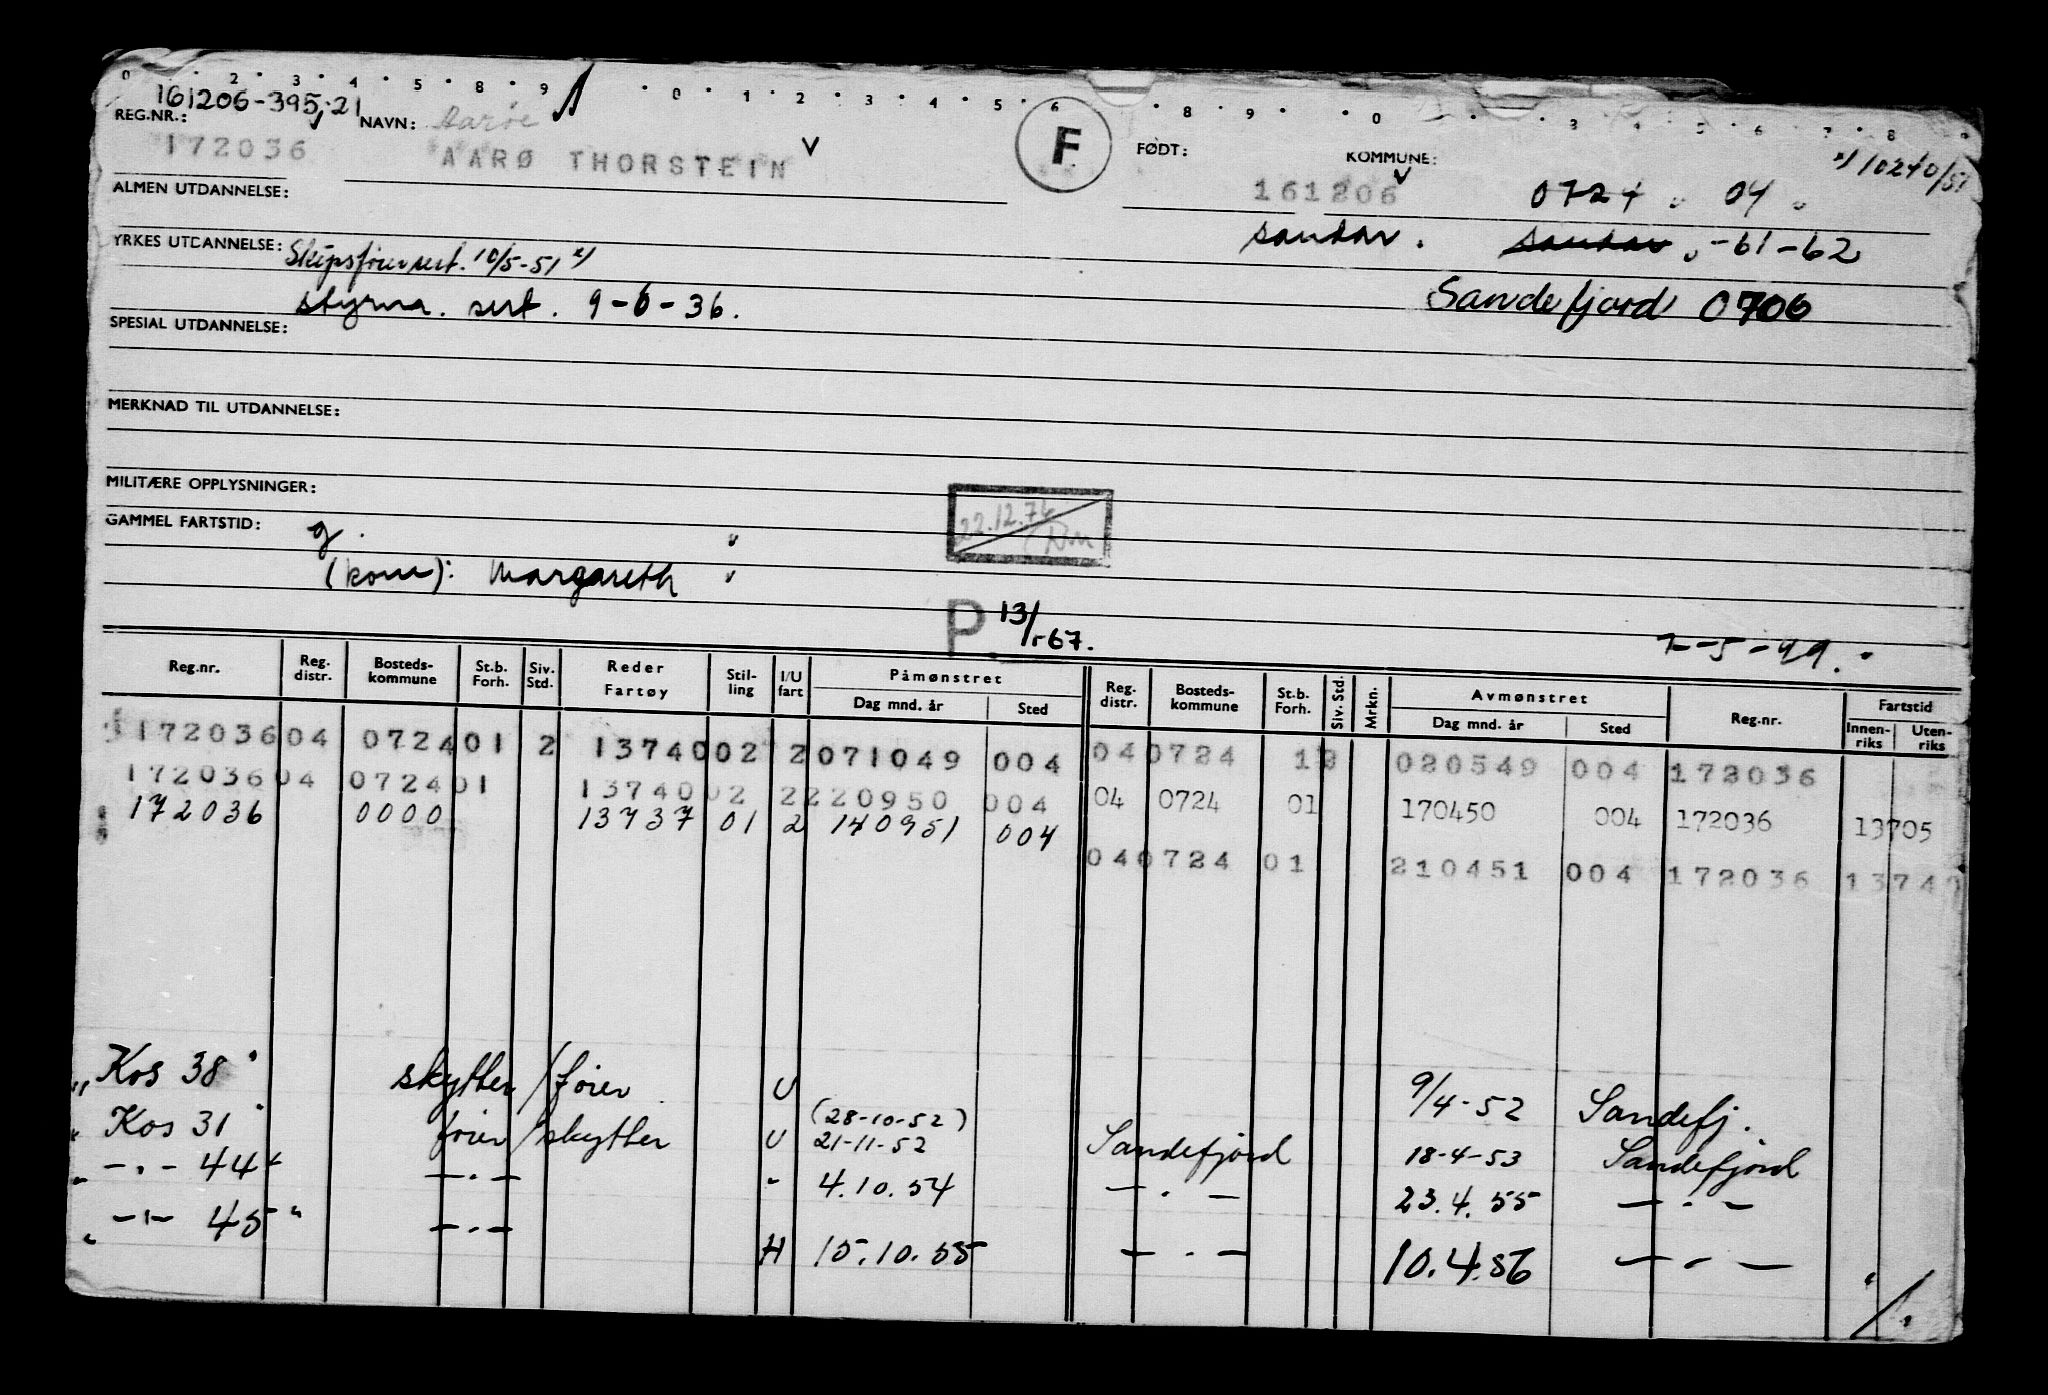 0 · 2 · 3 · 4 · 5 · 8 · 9 · 0 · 1 2 · 3 · 4 · 5 · 6 · 8 9 · 0 · 3 4 5 6 7 8 9
161206-395,21
REG.NR.: NAVN: Aarøe F FØDT: KOMMUNE: x) 10240/51
172036 AARØ THORSTEIN 161206 0724 04
ALMEN UTDANNELSE:
sandar. sandar -61-62
YRKES UTDANNELSE: Skipsførersert. 10/5-51 x)
styrm. sert. 9-6-36. Sandefjord 0706
SPESIAL UTDANNELSE:
MERKNAD TIL UTDANNELSE:
MILITÆRE OPPLYSNINGER:
22.12.76
GAMMEL FARTSTID: g.
(kone): Margareth "
P 13/ -67. 2-5-99.
Reg.nr. Reg. distr. Bosteds- kommune St.b. Forh. Siv. Std. Reder Fartøy Stil- ling I/U fart Påmønstret Dag mnd. år Sted Reg. distr. Bosteds- kommune St.b. Forh. Siv. Std. Mrkn. Avmønstret Dag mnd. år Sted Reg.nr. Fartstid Innen- riks Uten- riks
172036 04 0724 01 2 13740 02 2 071049 004 04 0724 1 2 020549 004 172036
172036 04 0724 01 13740 02 2 220950 004 04 0724 01 170450 004 172036 13705
172036 0000 13737 01 2 140951 004
04 0724 01 210451 004 172036 1374
" Kos 38 " skytter/fører U 9/4-52 Sandefj.
(28-10-52)
" Kos 31 " fører/skytter U 21-11-52 Sandefjord 18-4-53 Sandefjord
" -"- 44 " -"- " 4.10.54 -"- 23.4.55 -"-
" -"- 45 " -"- H 15.10.55 -"- 10.4.56 -"-